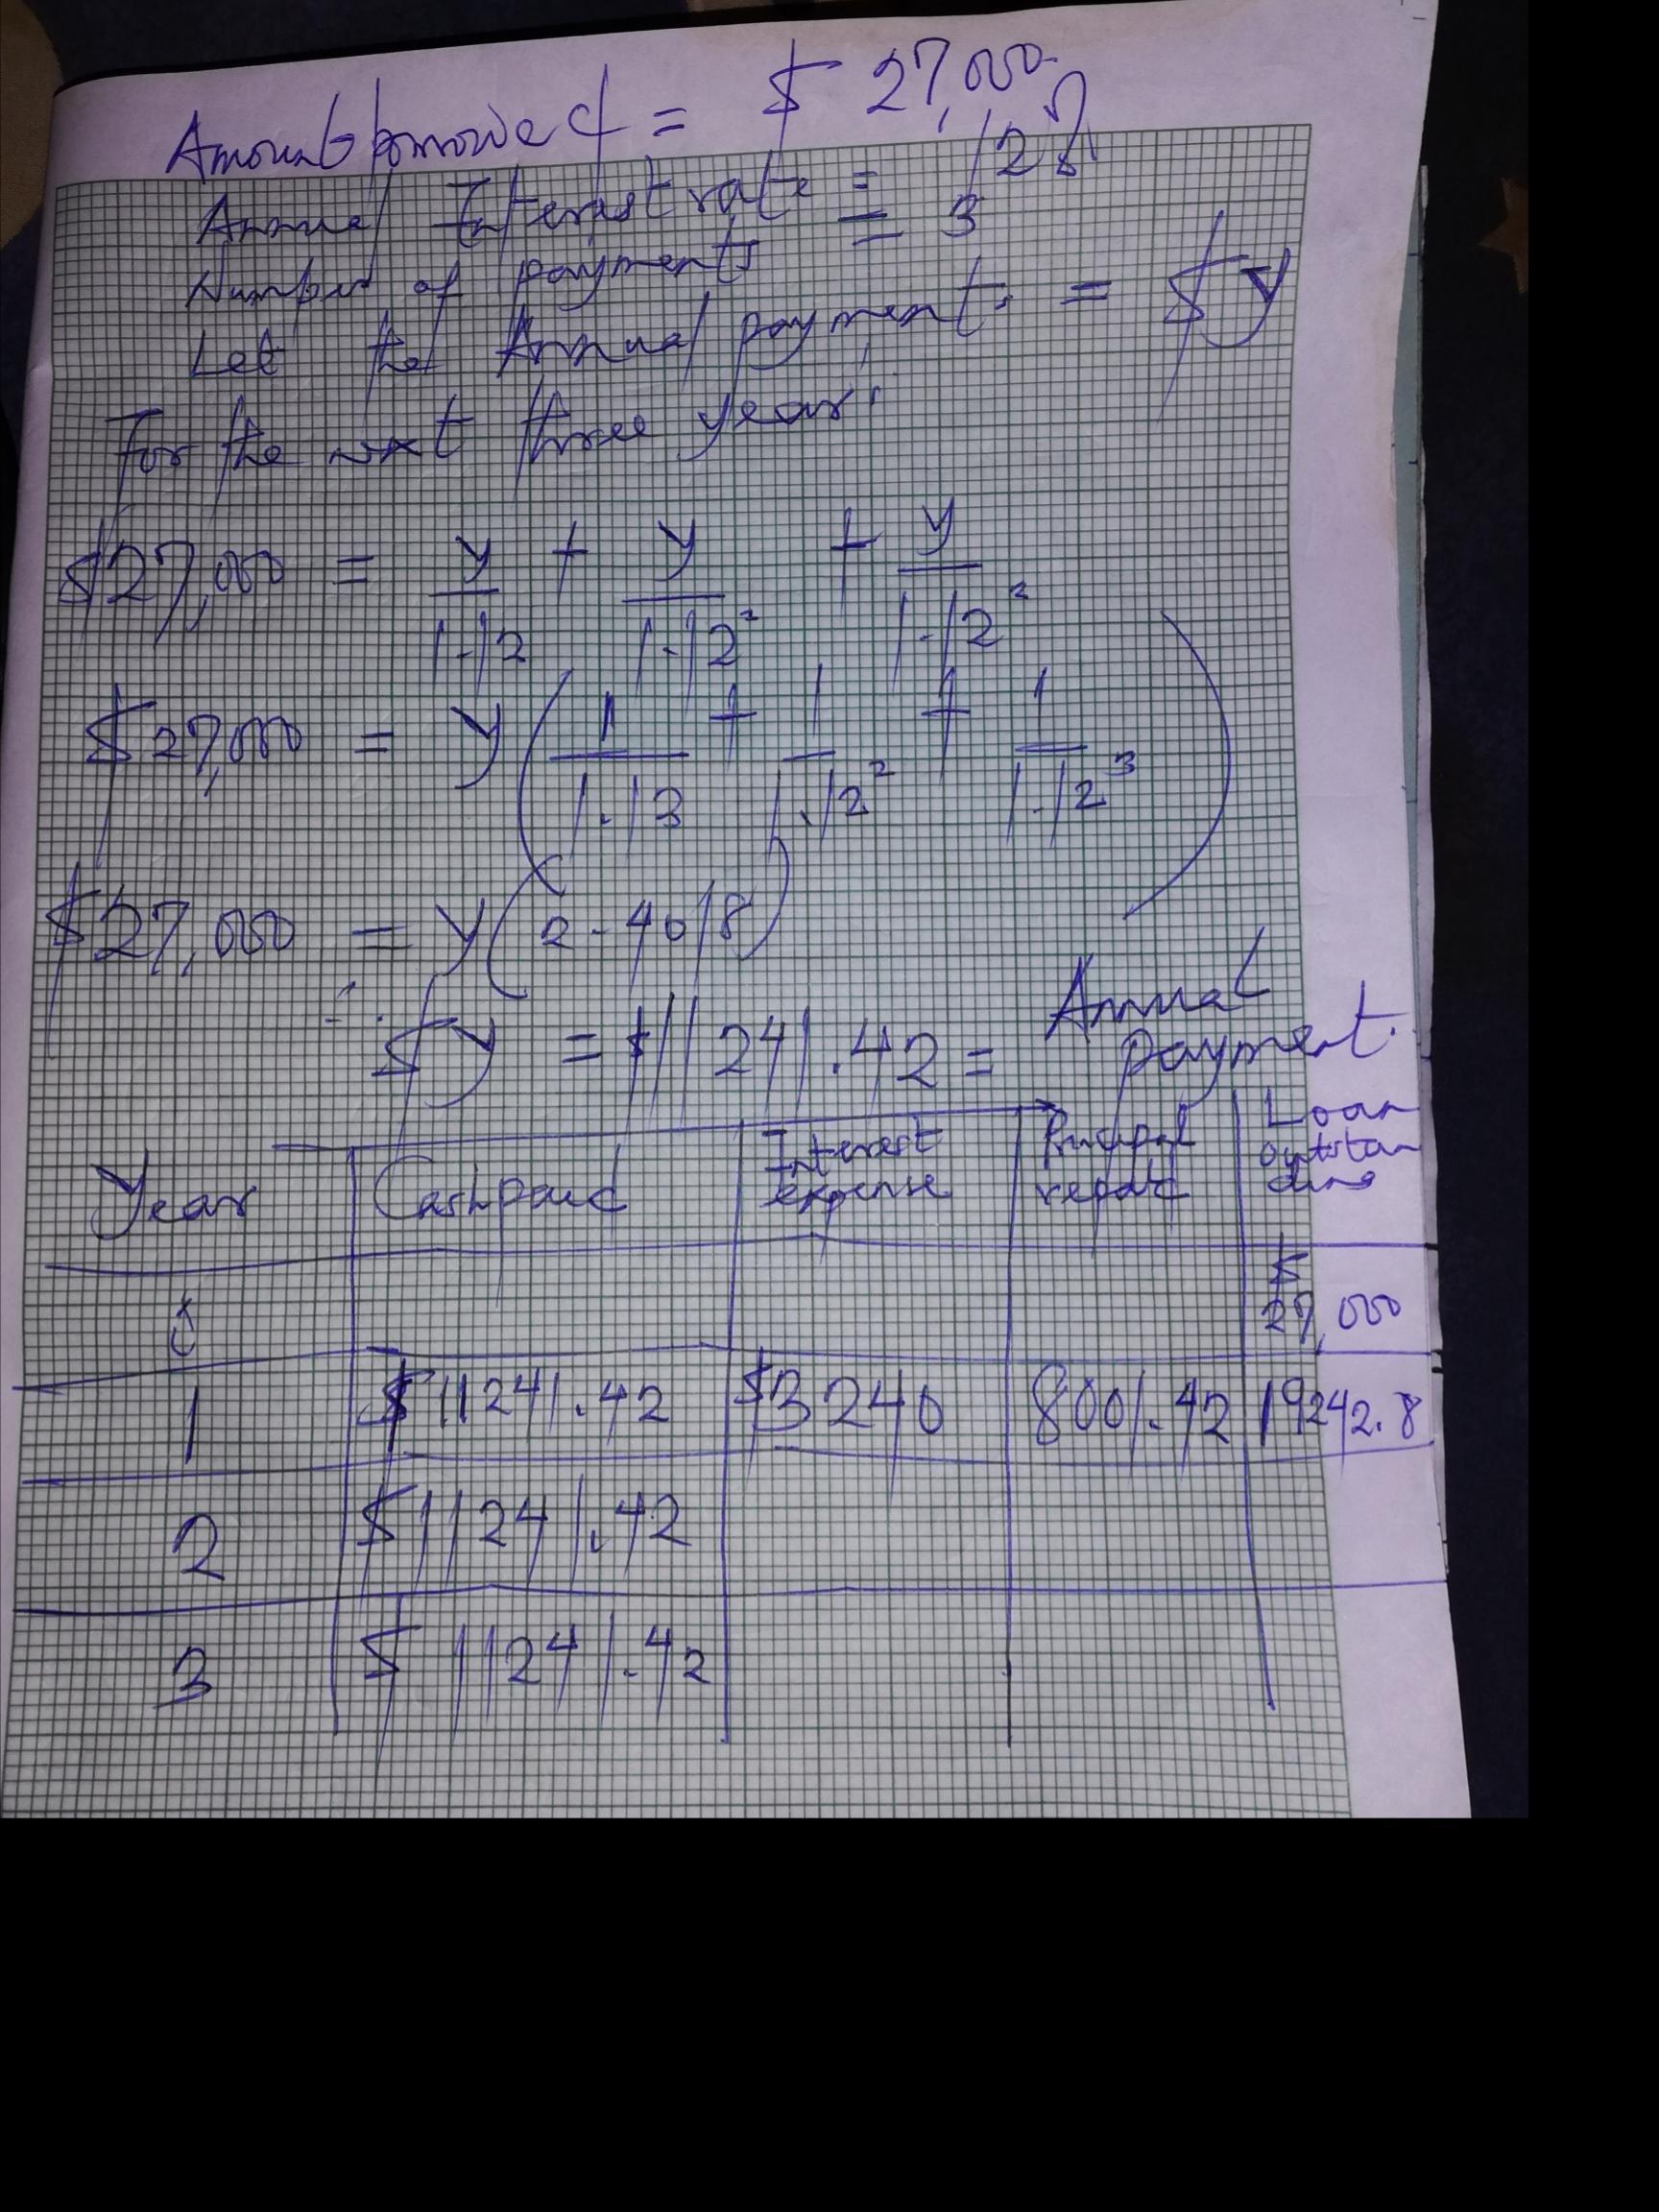 Amount borrowed = $ 27,000
Annual Interest rate = 12%
Number of payments = 3
Let the Annual payment = $y
For the next three years
$27,000 = y/1.12 + y/1.12² + y/1.12²
$27,000 = y(1/1.13 + 1/1.12² + 1/1.12³)
$27,000 = y(2.4018)
∴ $y = $11241.42 = Annual payment.
Year Cash paid Interest expense Principal repaid Loan outstanding
0 $27,000
1 $11241.42 $3240 8001.42 19242.8
2 $11241.42
3 $11241.42